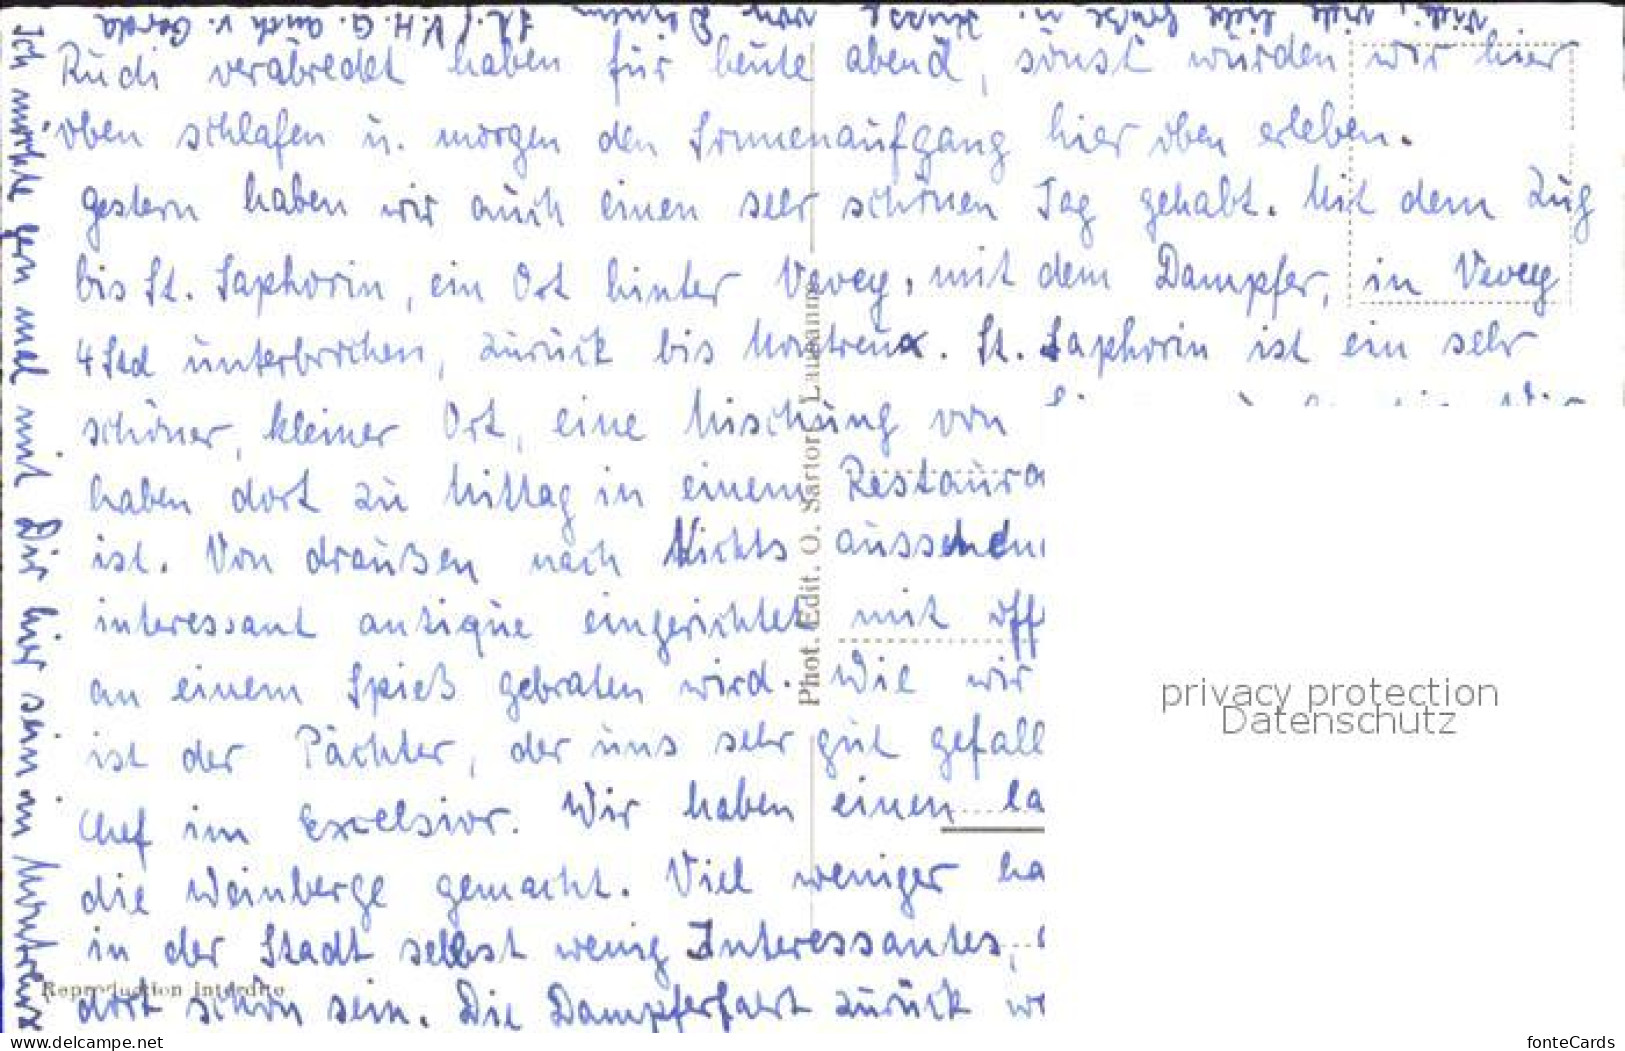 Rudi verabredet haben für heute abend, sonst würden wir hier
oben schlafen u. morgen den Sonnenaufgang hier oben erleben.
Gestern haben wir auch einen sehr schönen Tag gehabt. Mit dem Zug
bis St. Saphorin, ein Ort hinter Vevey, mit dem Dampfer, in Vevey
4 Std unterbrochen, zurück bis Montreux. St. Saphorin ist ein sehr
schöner, kleiner Ort, eine Mischung von
haben dort zu Mittag in einem Restaura
ist. Von draußen nach Nichts aussehen
interessant antique eingerichtet mit off
an einem Spieß gebraten wird. Wie wir
ist der Pächter, der uns sehr gut gefall
Chef im Excelsior. Wir haben einen la
die Weinberge gemacht. Viel weniger ha
in der Stadt selbst wenig Interessantes,
dort schön sein. Die Dampferfahrt zurück
Ich möchte gern mal mit Dir hier sein in Montreux
viele liebe Grüße u. Küsse von Deinem
V. H. G. auch v. Gerda
Phot. Edit. O. Sartori Lausanne
Reproduction interdite
privacy protection
Datenschutz
www.delcampe.net
fonteCards